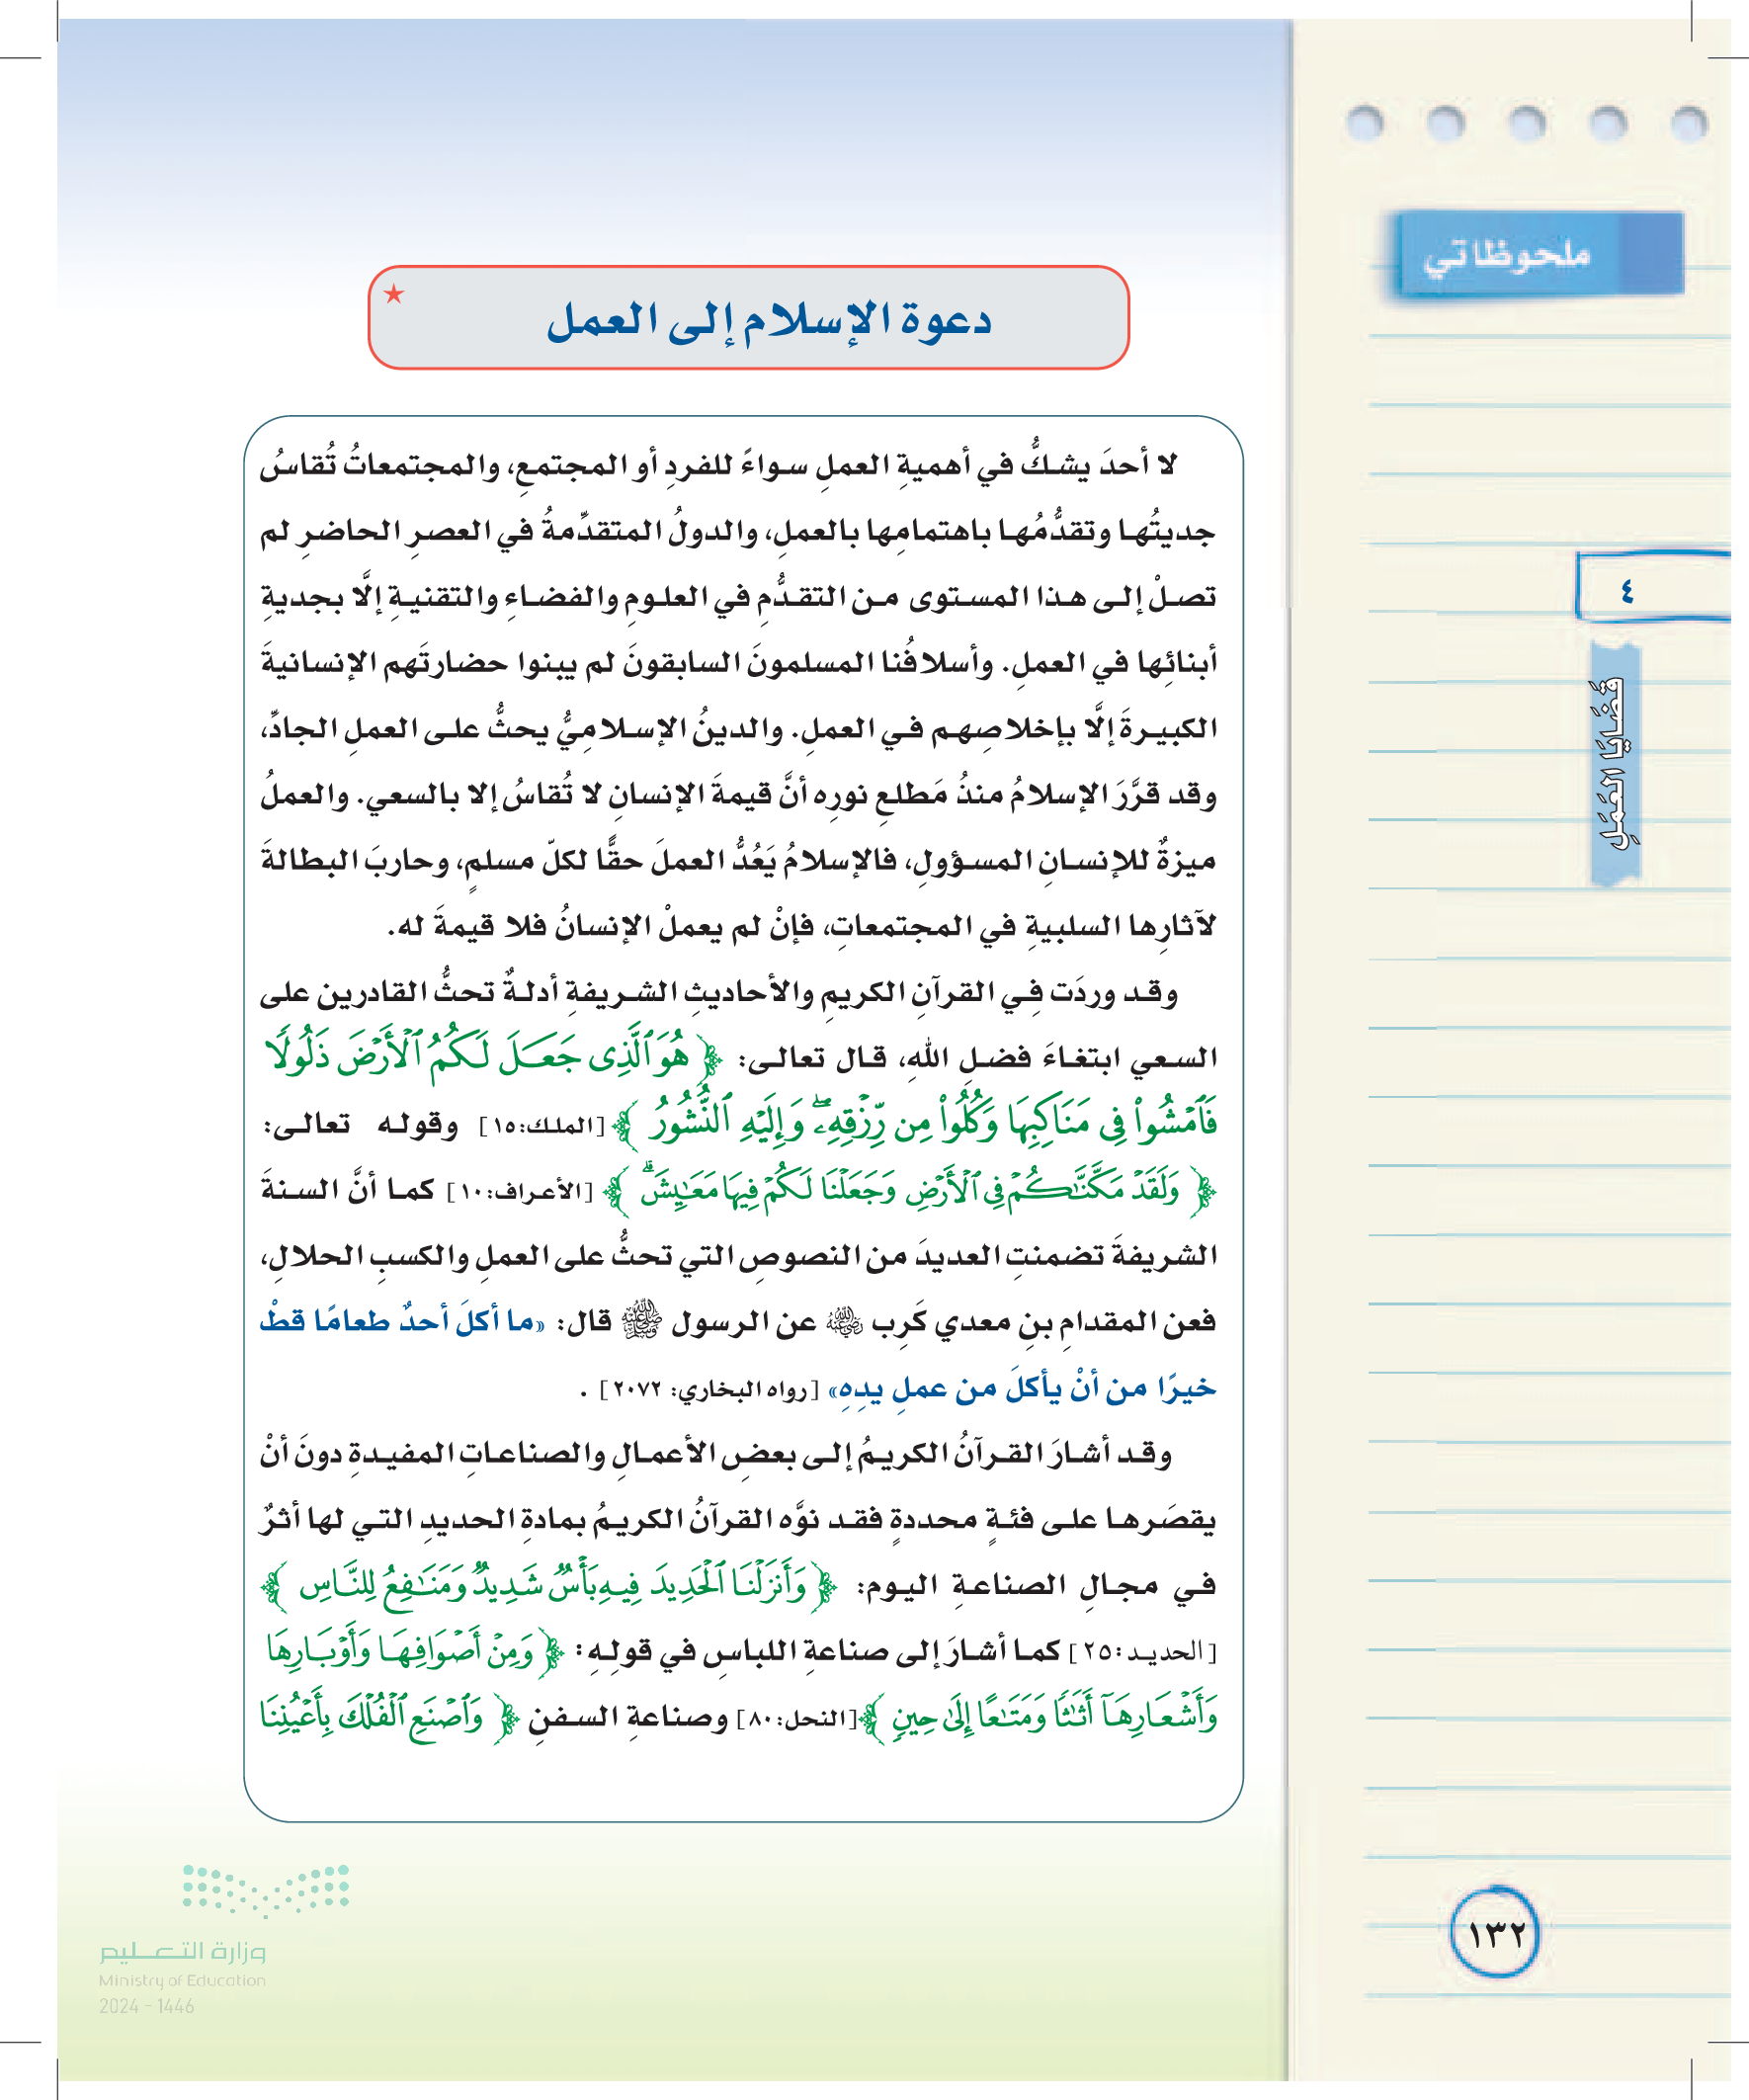 ملحوظاتي
٤
قَضَايَا العَمَلِ
دعوة الإسلام إلى العمل
لا أحدَ يشكُّ في أهميةِ العملِ سواءً للفردِ أو المجتمعِ، والمجتمعاتُ تُقاسُ
جديتُها وتقدُّمُها باهتمامِها بالعملِ، والدولُ المتقدِّمةُ في العصرِ الحاضرِ لم
تصلْ إلى هذا المستوى من التقدُّمِ في العلومِ والفضاءِ والتقنيةِ إلَّا بجديةِ
أبنائِها في العملِ. وأسلافُنا المسلمونَ السابقونَ لم يبنوا حضارتَهم الإنسانيةَ
الكبيرةَ إلَّا بإخلاصِهم في العملِ. والدينُ الإسلاميُّ يحثُّ على العملِ الجادِّ،
وقد قرَّرَ الإسلامُ منذُ مَطلعِ نورِه أنَّ قيمةَ الإنسانِ لا تُقاسُ إلا بالسعي. والعملُ
ميزةٌ للإنسانِ المسؤولِ، فالإسلامُ يَعُدُّ العملَ حقًّا لكلّ مسلمٍ، وحاربَ البطالةَ
لآثارِها السلبيةِ في المجتمعاتِ، فإنْ لم يعملْ الإنسانُ فلا قيمةَ له.
وقد وردَت فِي القرآنِ الكريمِ والأحاديثِ الشريفةِ أدلةٌ تحثُّ القادرين على
السعي ابتغاءَ فضلِ اللهِ، قال تعالى: ﴿ هُوَ ٱلَّذِى جَعَلَ لَكُمُ ٱلْأَرْضَ ذَلُولًا
فَٱمْشُوا۟ فِى مَنَاكِبِهَا وَكُلُوا۟ مِن رِّزْقِهِۦ ۖ وَإِلَيْهِ ٱلنُّشُورُ ﴾ [الملك:١٥] وقوله تعالى:
﴿ وَلَقَدْ مَكَّنَّٰكُمْ فِى ٱلْأَرْضِ وَجَعَلْنَا لَكُمْ فِيهَا مَعَٰيِشَ ۗ ﴾ [الأعراف:١٠] كما أنَّ السنةَ
الشريفةَ تضمنتِ العديدَ من النصوصِ التي تحثُّ على العملِ والكسبِ الحلالِ،
فعن المقدامِ بنِ معدي كَرِب رضي الله عنه عن الرسول ﷺ قال: «ما أكلَ أحدٌ طعامًا قطْ
خيرًا من أنْ يأكلَ من عملِ يدِهِ» [رواه البخاري: ٢٠٧٢] .
وقد أشارَ القرآنُ الكريمُ إلى بعضِ الأعمالِ والصناعاتِ المفيدةِ دونَ أنْ
يقصَرها على فئةٍ محددةٍ فقد نوَّه القرآنُ الكريمُ بمادةِ الحديدِ التي لها أثرٌ
في مجالِ الصناعةِ اليوم: ﴿ وَأَنزَلْنَا ٱلْحَدِيدَ فِيهِ بَأْسٌ شَدِيدٌ وَمَنَٰفِعُ لِلنَّاسِ ﴾
[الحديد:٢٥] كما أشارَ إلى صناعةِ اللباسِ في قولِهِ: ﴿ وَمِنْ أَصْوَافِهَا وَأَوْبَارِهَا
وَأَشْعَارِهَآ أَثَٰثًا وَمَتَٰعًا إِلَىٰ حِينٍ ﴾ [النحل:٨٠] وصناعةِ السفنِ ﴿ وَٱصْنَعِ ٱلْفُلْكَ بِأَعْيُنِنَا
١٣٢
وزارة التعليم
Ministry of Education
2024 - 1446